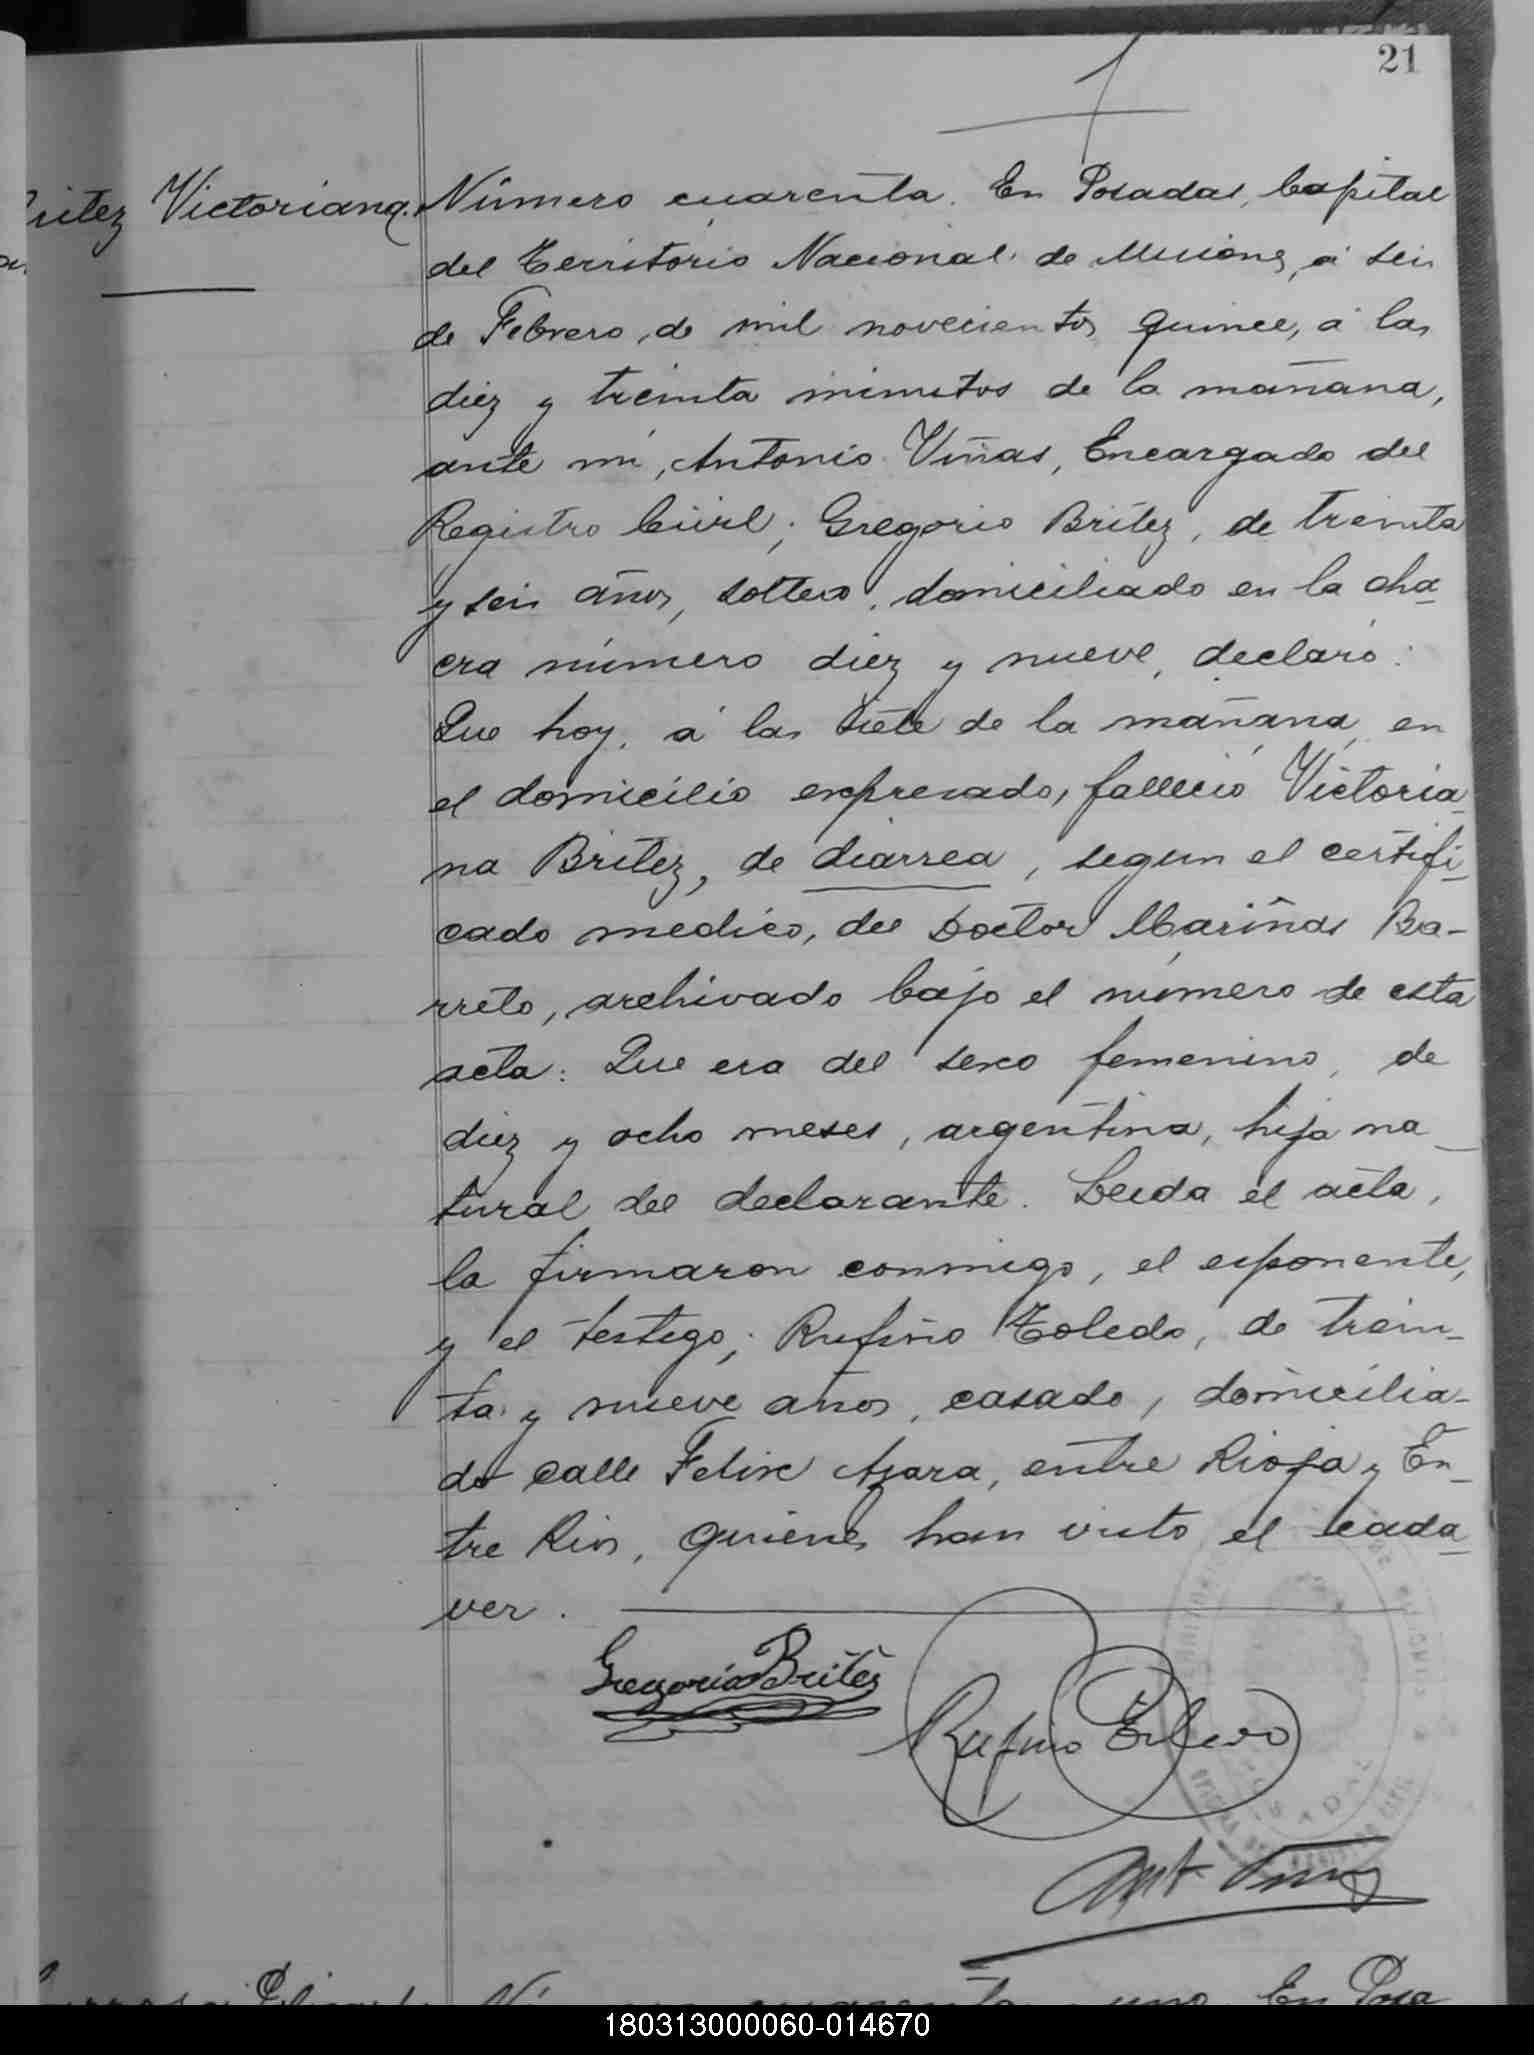 21
Britez Victoriana.
Número cuarenta. En Posadas, Capital
del Territorio Nacional de Misiones, á seis
de Febrero, de mil novecientos quince, á las
diez y treinta minutos de la mañana,
ante mi, Antonio Viñas, Encargado del
Registro Civil; Gregorio Britez, de treinta
y seis años, soltero, domiciliado en la cha
cra número diez y nueve, declaró:
Que hoy, á las siete de la mañana, en
el domicilio expresado, falleció Victoria
na Britez, de diarrea, segun el certifi
cado medico, del Doctor Mariñas Ba-
rreto, archivado bajo el número de esta
acta: Que era del sexo femenino, de
diez y ocho meses, argentina, hija na
tural del declarante. Leida el acta,
la firmaron conmigo, el exponente,
y el testigo; Rufino Toledo, de trein-
ta y nueve años, casado, domicilia-
do calle Felix Azara, entre Rioja y En-
tre Rios, quienes han visto el cada
ver.
Gregorio Britez
Rufino Toledo
Ant Viñas
Número cuarenta y uno. En Posa
180313000060-014670